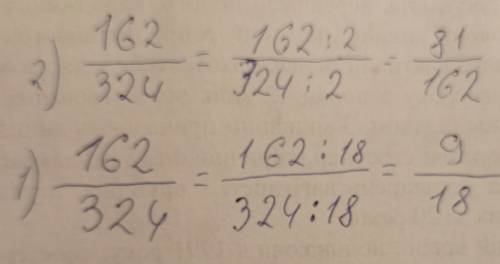 2) 162/324 = 162:2/324:2 = 81/162
1) 162/324 = 162:18/324:18 = 9/18